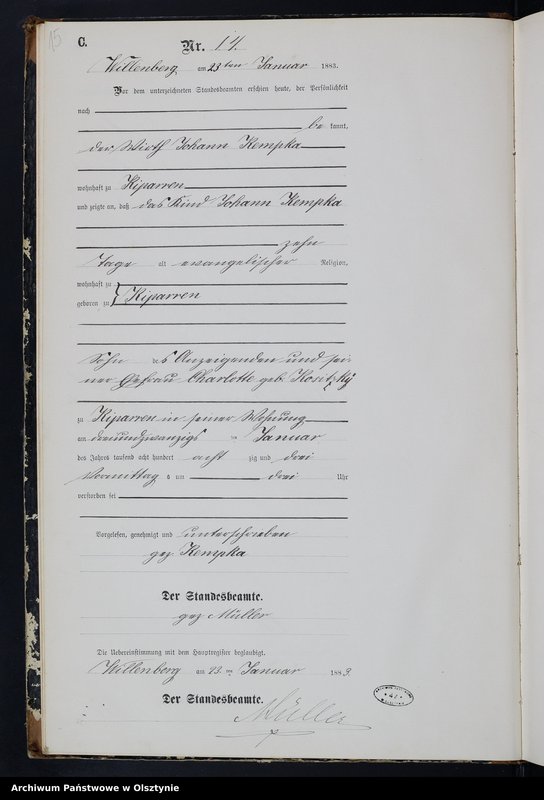 15
C.
Nr. 14.
Willenberg am 23ten Januar 1883.
Vor dem unterzeichneten Standesbeamten erschien heute, der Persönlichkeit
nach
be kannt,
der Wirth Johann Kempka
wohnhaft zu Kiparren
und zeigte an, daß das Kind Johann Kempka
zehn
Tage alt evangelischer Religion,
wohnhaft zu
geboren zu Kiparren
Sohn des Anzeigenden und sei-
ner Ehefrau Charlotte geb. Kositzky
zu Kiparren in seiner Wohnung
am dreiundzwanzigs ten Januar
des Jahres tausend acht hundert acht zig und drei
Vormittag s um drei Uhr
verstorben sei
Vorgelesen, genehmigt und unterschrieben
gez Kempka
Der Standesbeamte.
gez Müller
Die Uebereinstimmung mit dem Hauptregister beglaubigt.
Willenberg am 23. ten Januar 1883.
Der Standesbeamte.
Müller
Archiwum Państwowe w Olsztynie